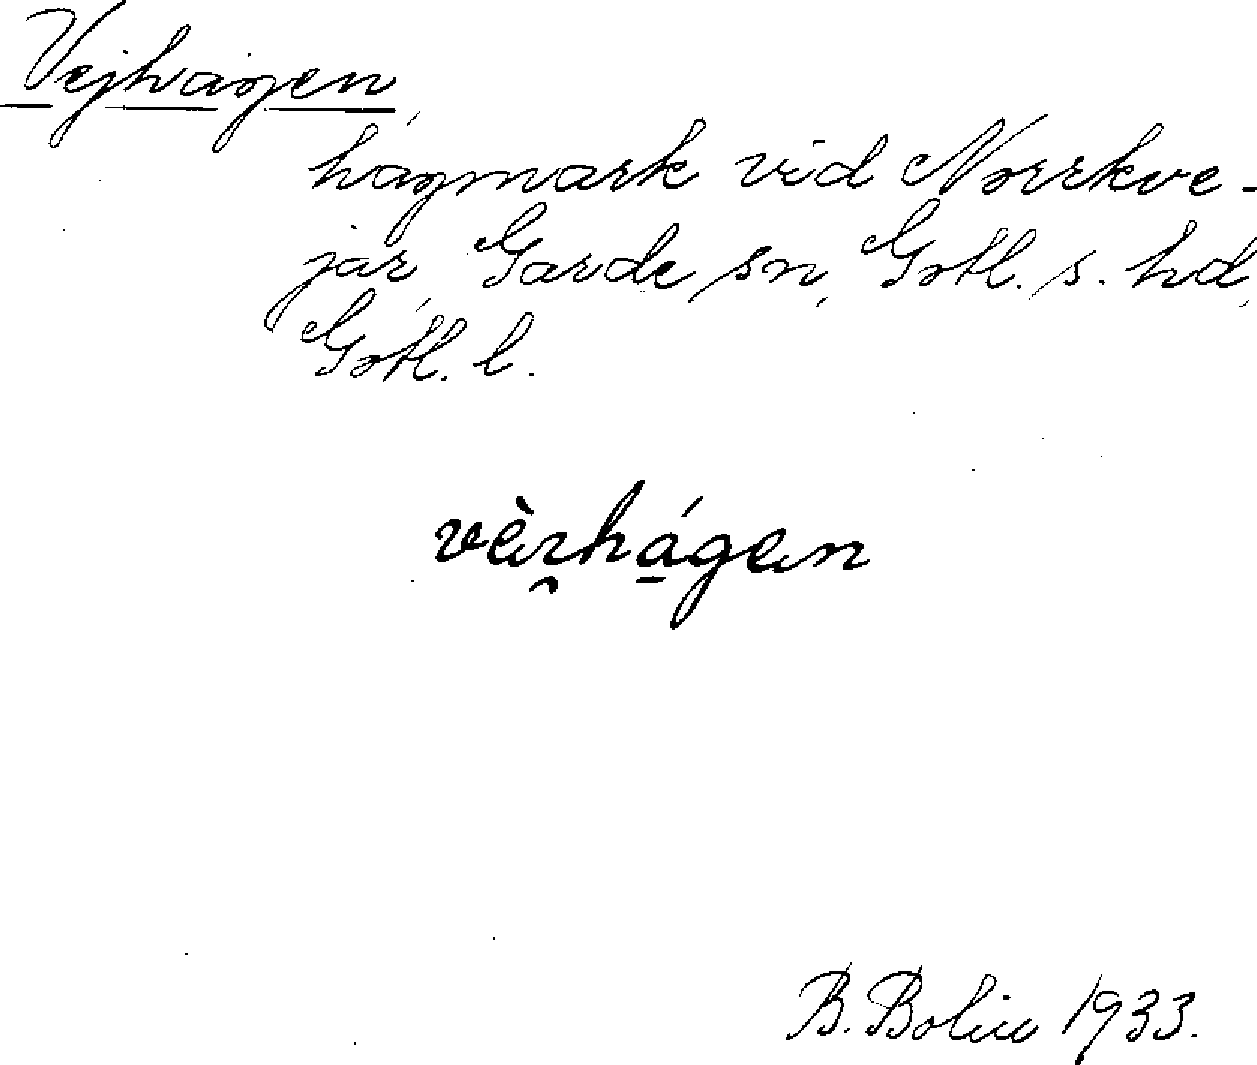 Vejhagen,
hagmark vid Norrkve-
jar, Garde sn, Gotl. s. hd,
Gotl. l.
B. Bolin 1933.